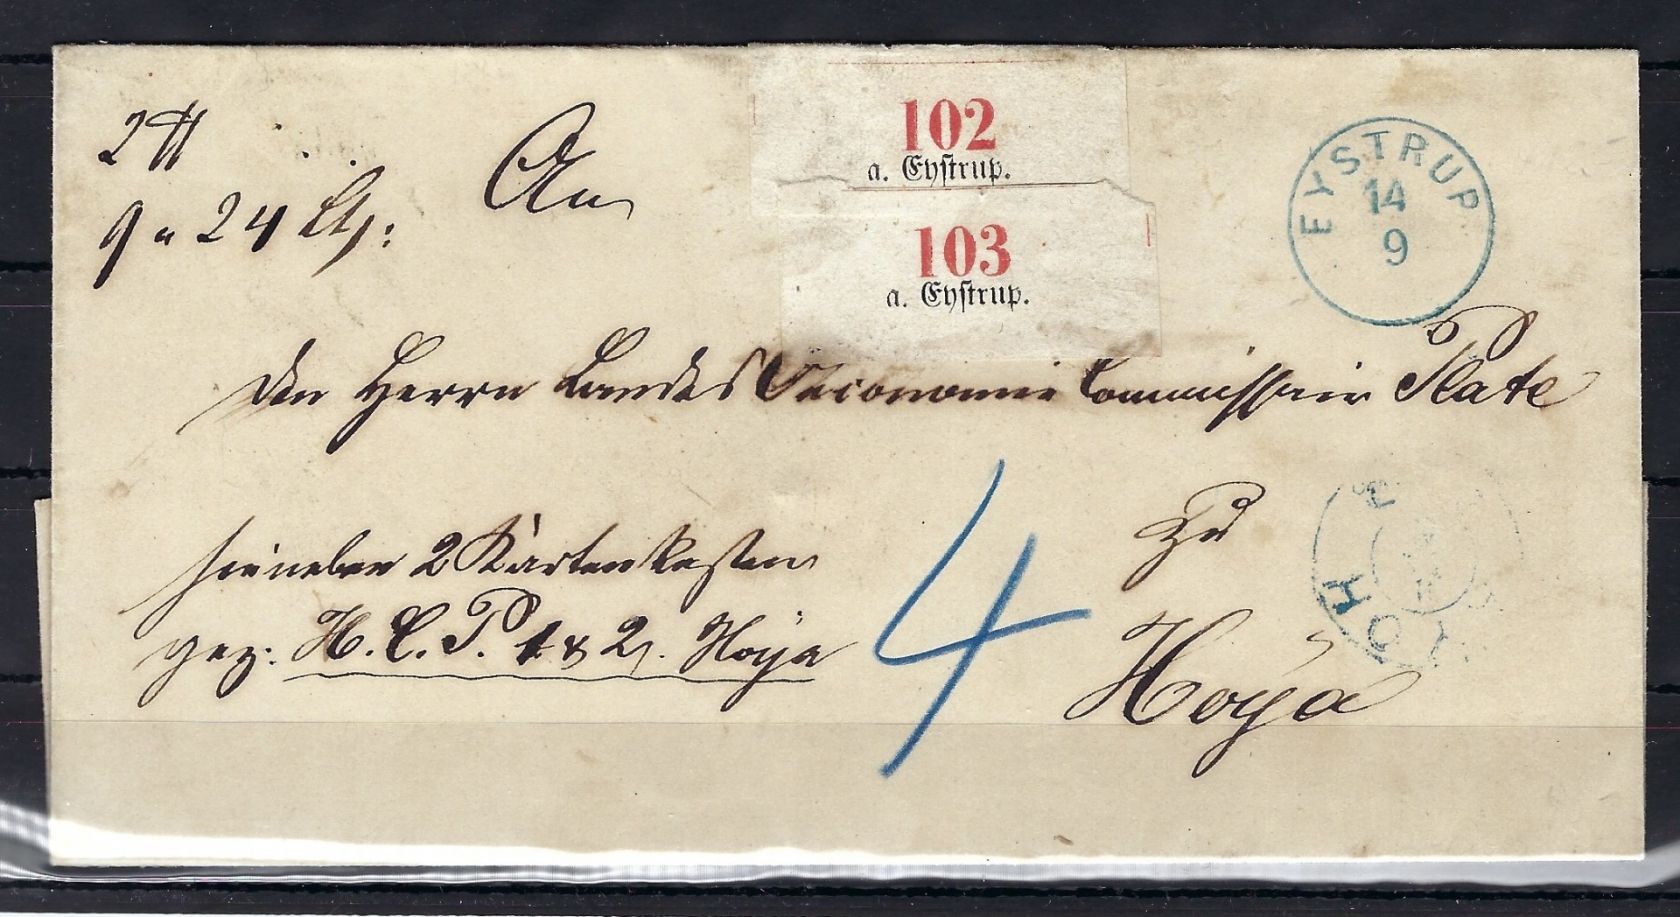 2 ℔
9 " 24 Lth:
An
102
a. Eyſtrup.
103
a. Eyſtrup.
EYSTRUP
14
9
den Herrn Landes Oeconomie Commissair Plate
hieneben 2 Kartenkasten
gez: H. C. P. 1 & 2. Hoya
4
zu
Hoya
HOY